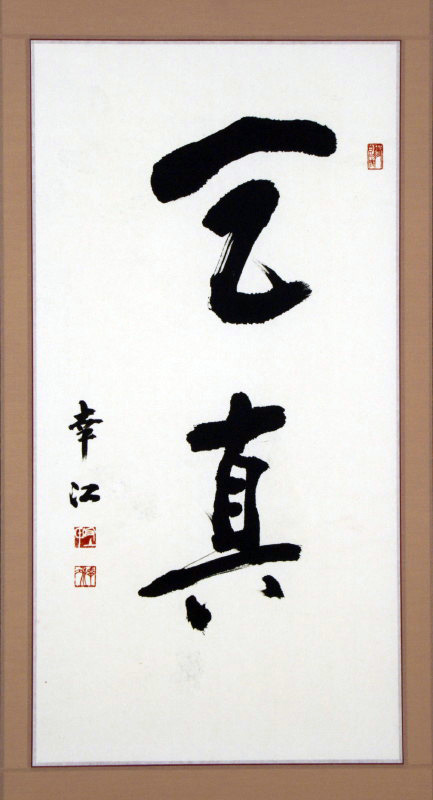 天真
幸江